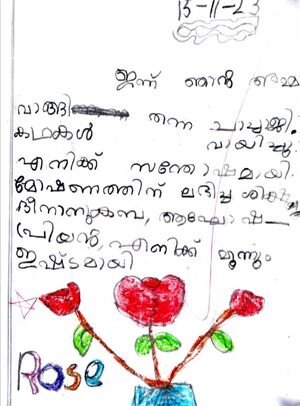 13-11-23
ഇന്ന് ഞാൻ അമ്മ
വാങ്ങി തന്ന
കഥകൾ വായിച്ചു.
എനിക്ക് സന്തോഷമായി.
മോഷണത്തിന് ലഭിച്ച ശിക്ഷ,
ദീനാനുകമ്പ, ആഘോഷ
പ്രിയൻ, എനിക്ക് മൂന്നും
ഇഷ്ടമായി
Rose